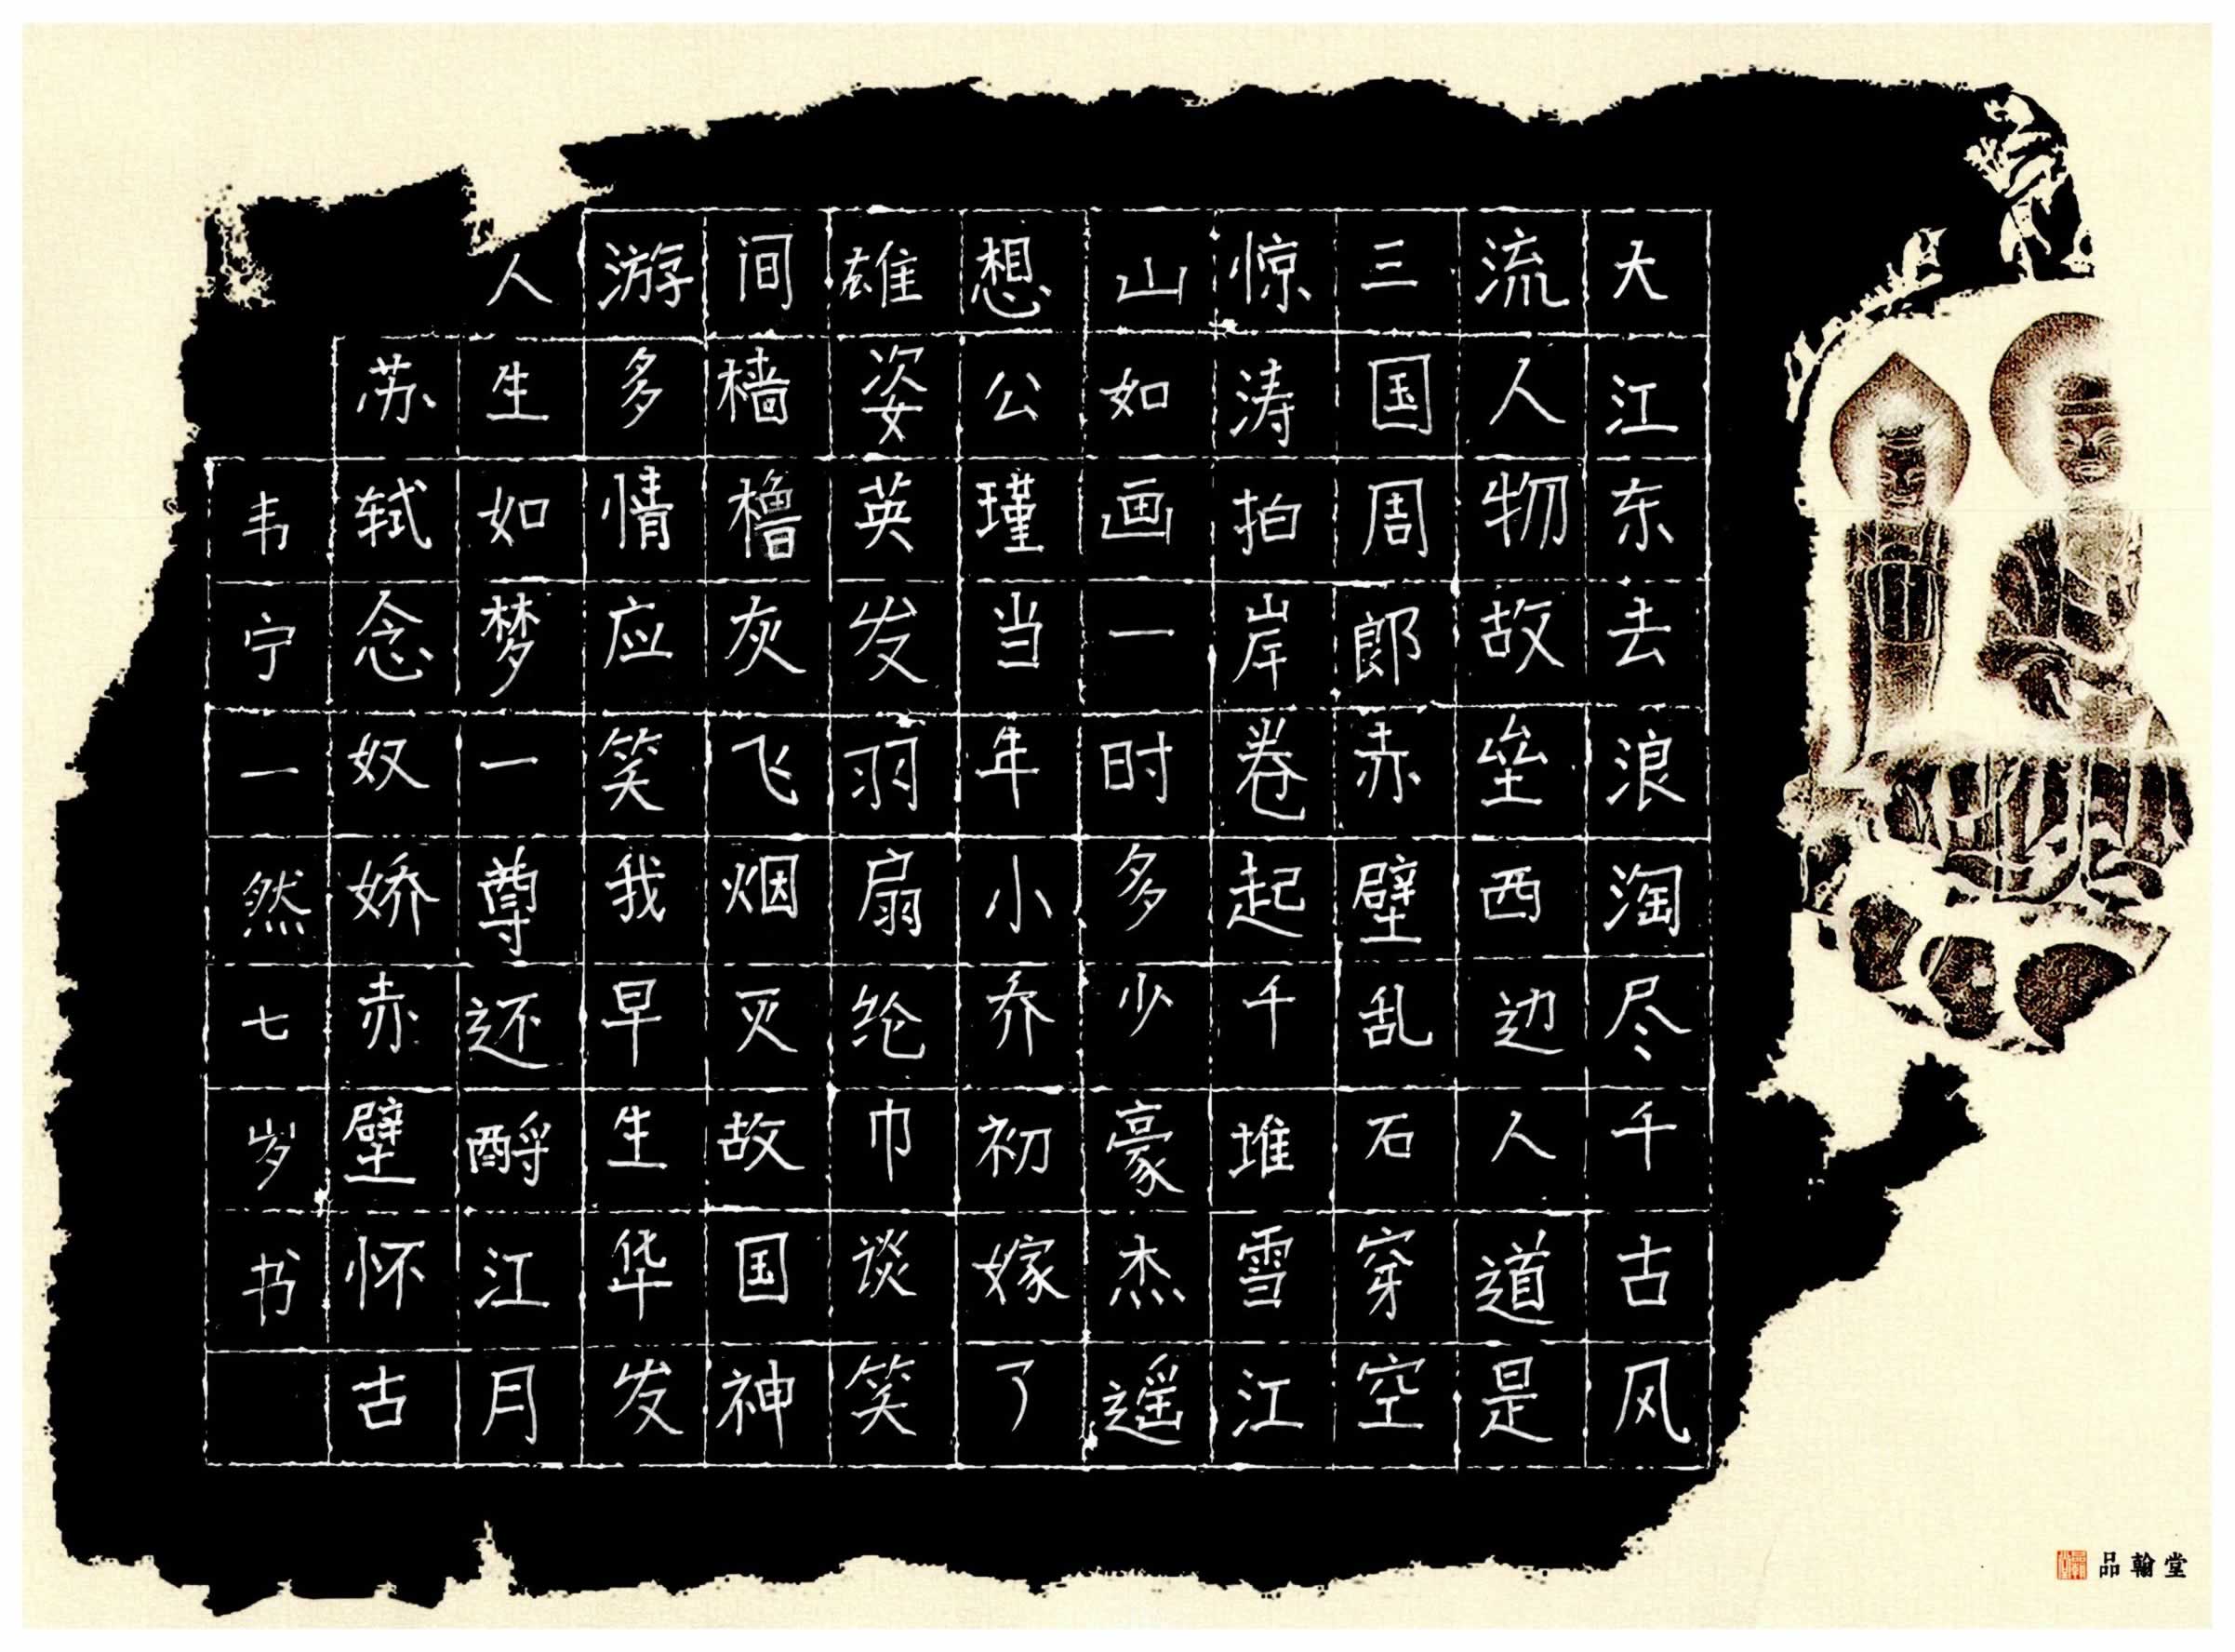 大江东去浪淘尽千古风
流人物故垒西边人道是
三国周郎赤壁乱石穿空
惊涛拍岸卷起千堆雪江
山如画一时多少豪杰遥
想公瑾当年小乔初嫁了
雄姿英发羽扇纶巾谈笑
间樯橹灰飞烟灭故国神
游多情应笑我早生华发
人生如梦一尊还酹江月
苏轼念奴娇赤壁怀古
韦宁一然七岁书
品翰堂